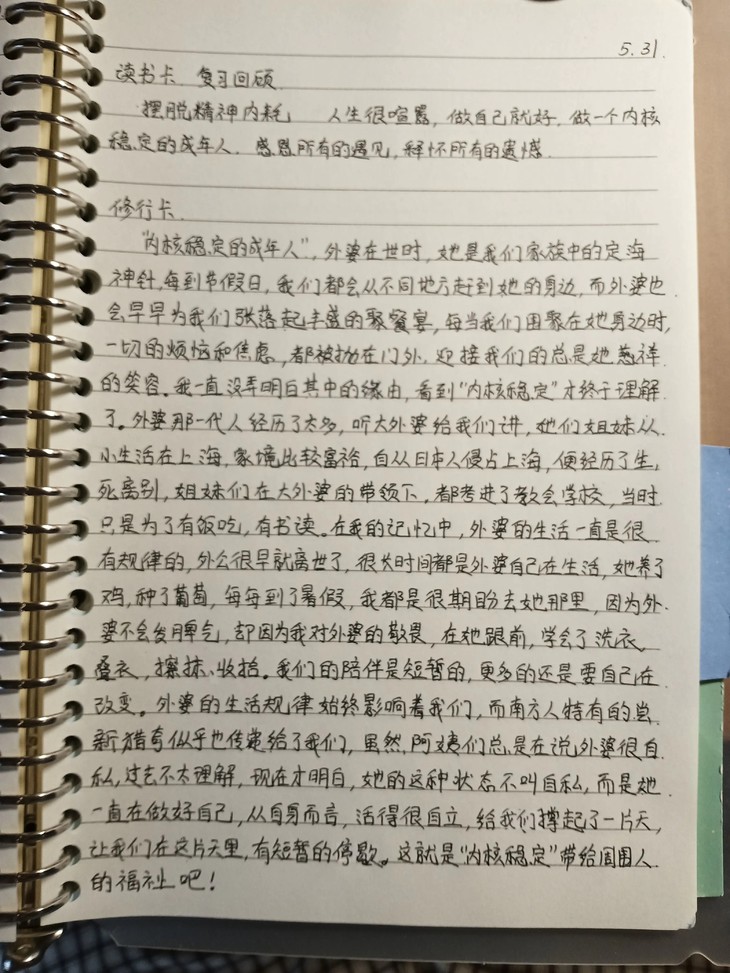 5.31.
读书卡. 复习回顾.
摆脱精神内耗 人生很喧嚣, 做自己就好, 做一个内核
稳定的成年人. 感恩所有的遇见, 释怀所有的遗憾.
修行卡.
"内核稳定的成年人", 外婆在世时, 她是我们家族中的定海
神针, 每到节假日, 我们都会从不同地方赶到她的身边, 而外婆也
会早早为我们张落起丰盛的聚餐宴, 每当我们围聚在她身边时,
一切的烦恼和焦虑, 都被抛在门外. 迎接我们的总是她慈祥
的笑容. 我一直没弄明白其中的缘由, 看到"内核稳定"才终于理解
了。外婆那一代人经历了太多, 听大外婆给我们讲, 她们姐妹从
小生活在上海, 家境比较富裕, 自从日本人侵占上海, 便经历了生
死离别, 姐妹们在大外婆的带领下, 都考进了教会学校, 当时
只是为了有饭吃, 有书读。在我的记忆中, 外婆的生活一直是很
有规律的, 外公很早就离世了, 很长时间都是外婆自己在生活, 她养了
鸡, 种了葡萄, 每每到了暑假, 我都是很期盼去她那里, 因为外
婆不会发脾气, 却因为我对外婆的敬畏, 在她跟前, 学会了洗衣、
叠衣, 擦抹、收拾。我们的陪伴是短暂的, 更多的还是要自己在
改变。外婆的生活规律始终影响着我们, 而南方人特有的尝
新猎奇似乎也传递给了我们, 虽然, 阿姨们总是在说外婆很自
私, 过去不太理解, 现在才明白, 她的这种状态不叫自私, 而是她
一直在做好自己, 从自身而言, 活得很自立, 给我们撑起了一片天,
让我们在这片天里, 有短暂的停歇。这就是"内核稳定"带给周围人
的福祉吧!